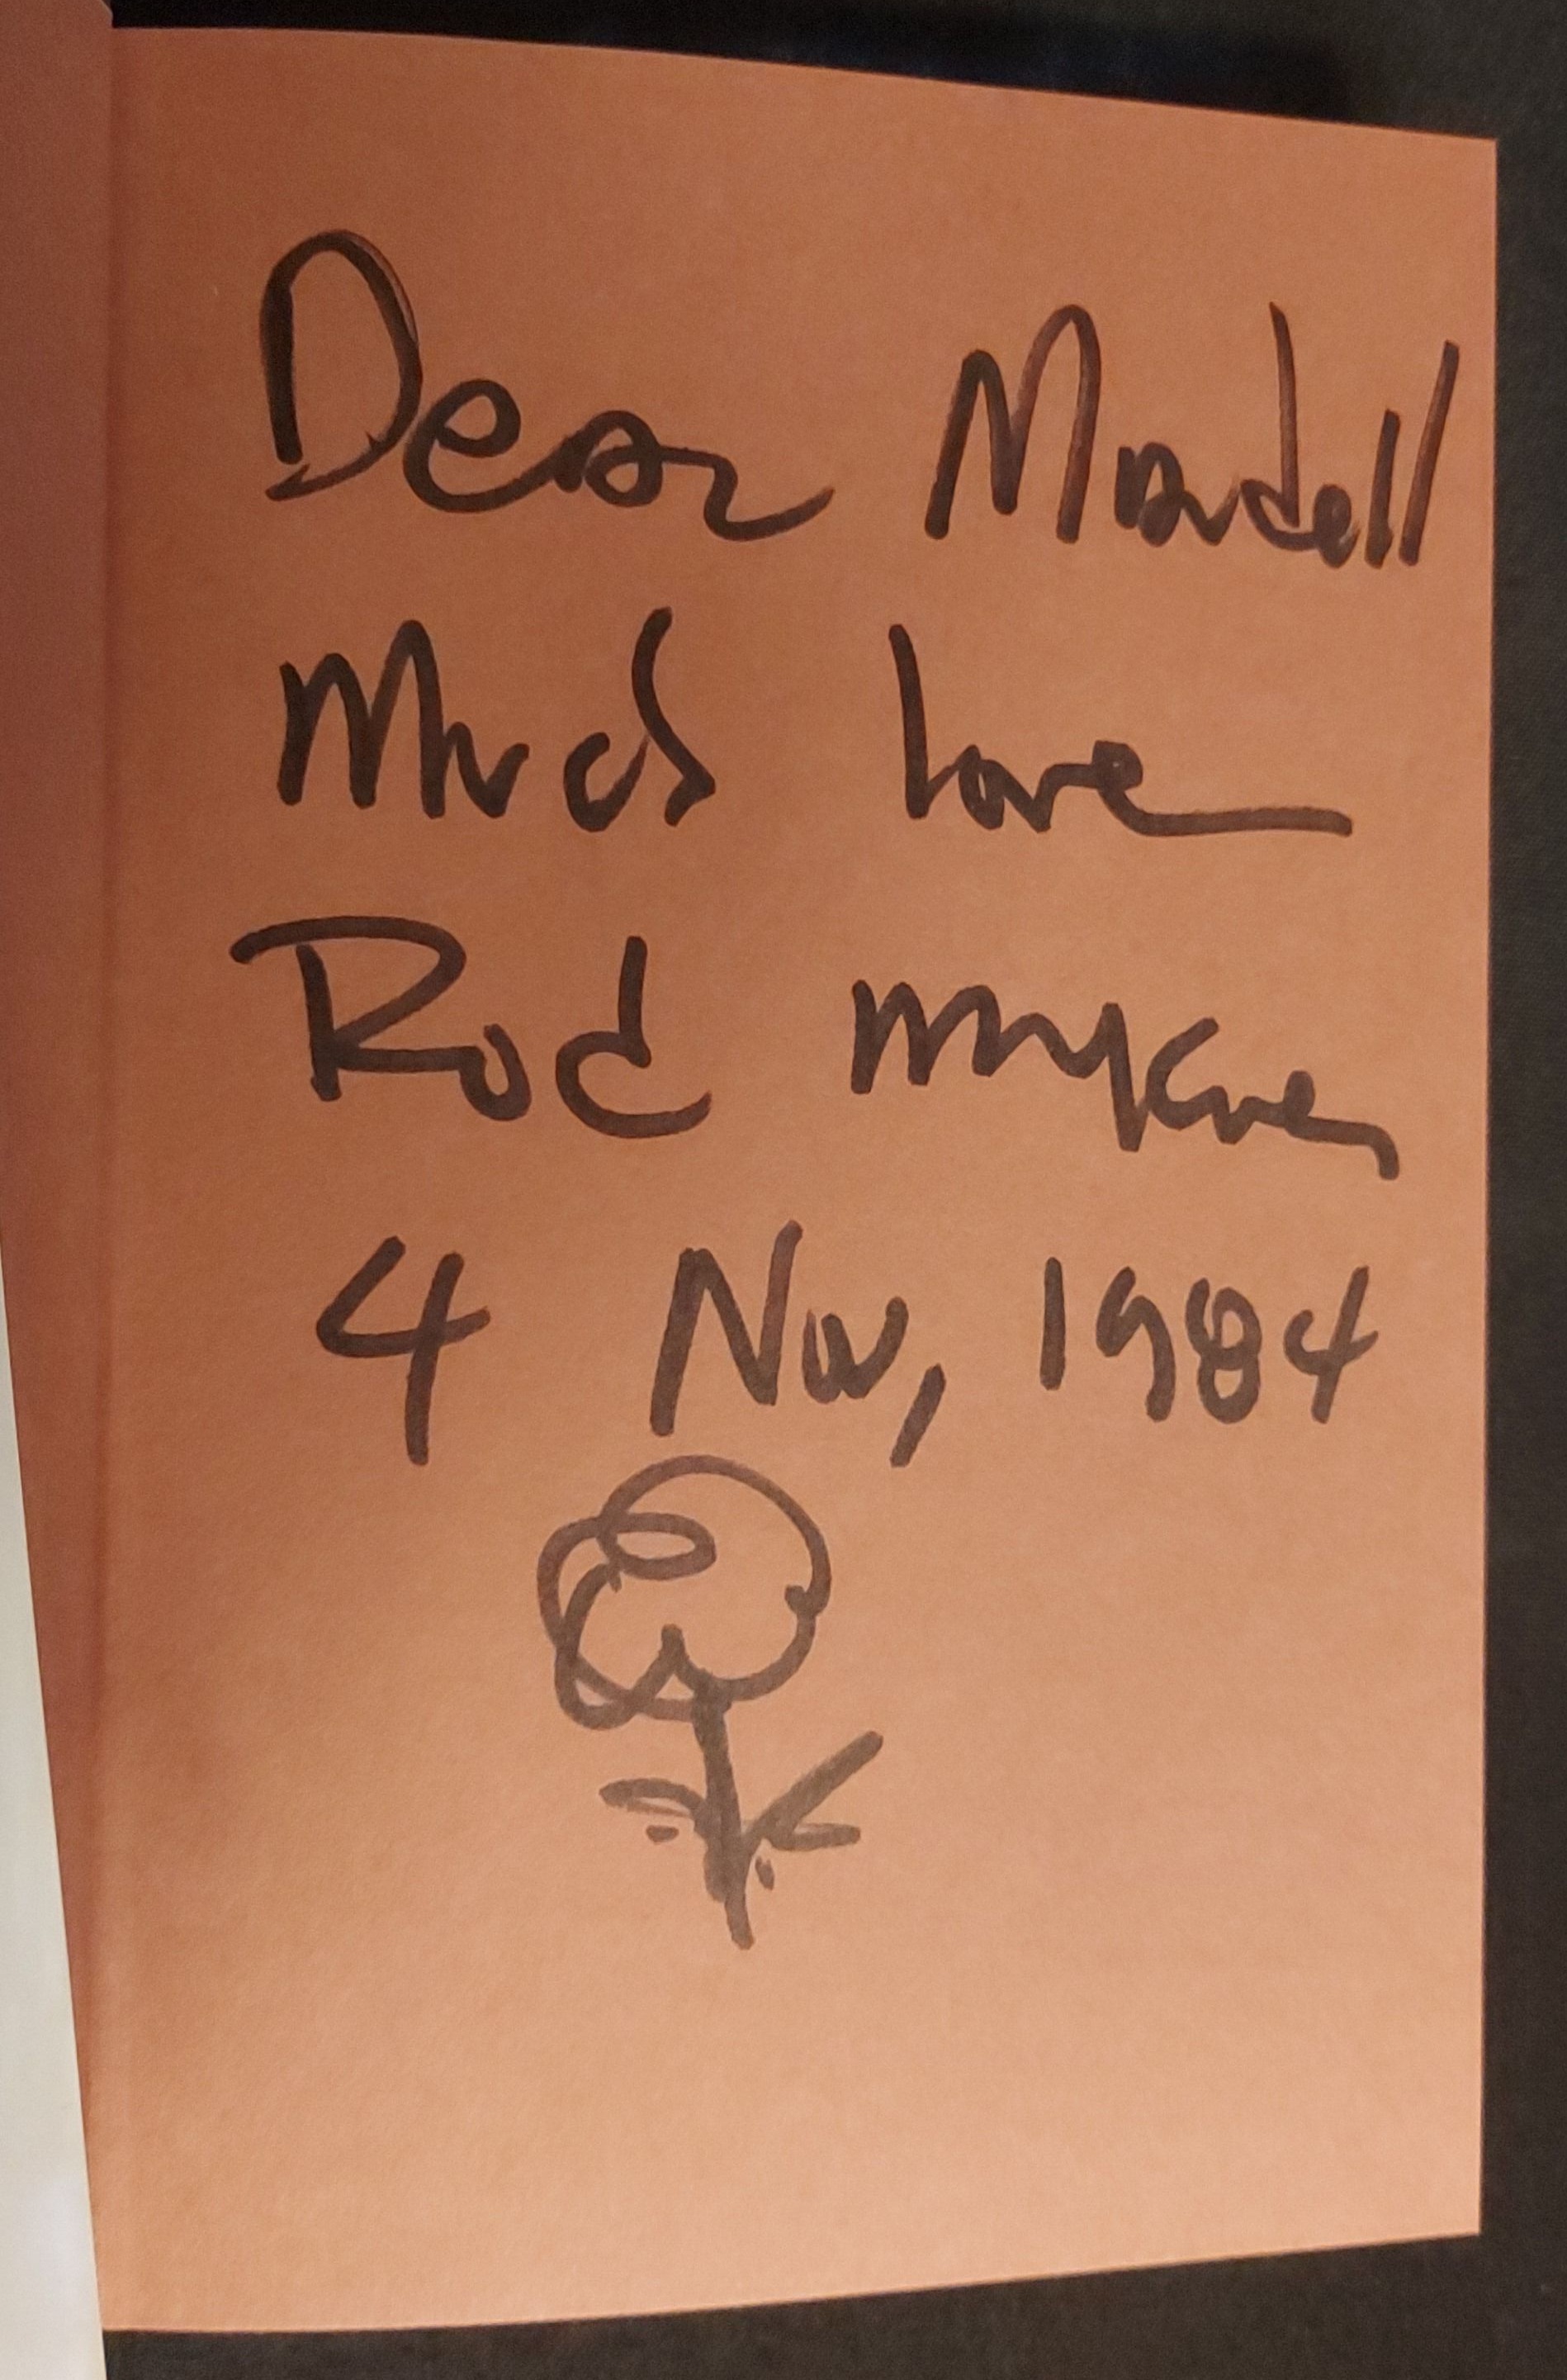 Dear Mandell
Much love
Rod McKuen
4 Nov, 1984